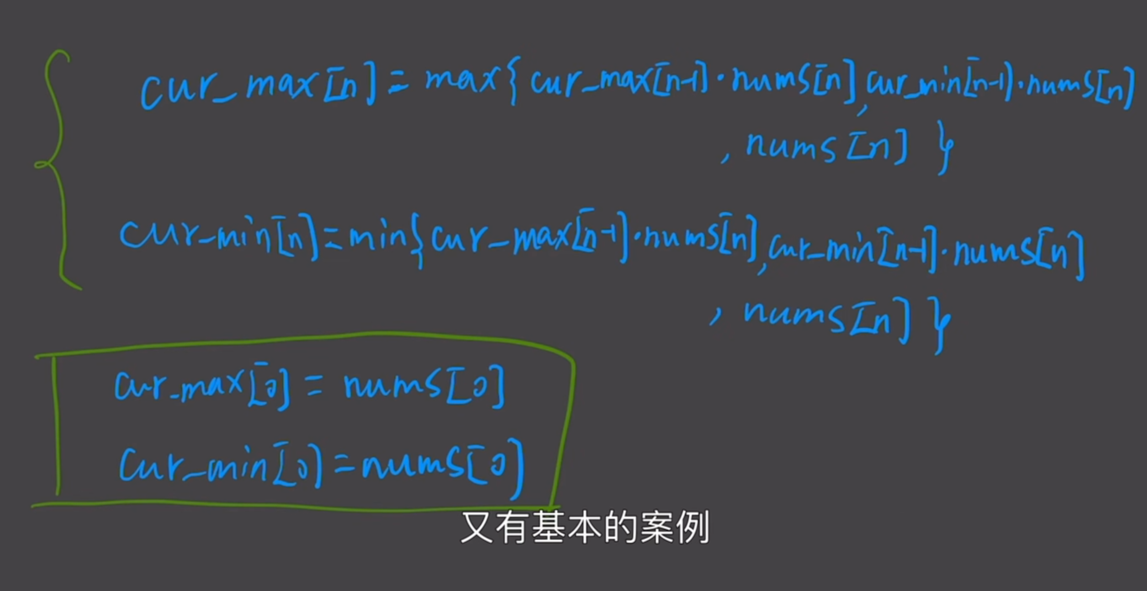 cur_max[n] = max{ cur_max[n-1]·nums[n], cur_min[n-1]·nums[n]
, nums[n] }
cur_min[n] = min{ cur_max[n-1]·nums[n], cur_min[n-1]·nums[n]
, nums[n] }
cur_max[0] = nums[0]
cur_min[0] = nums[0]
又有基本的案例